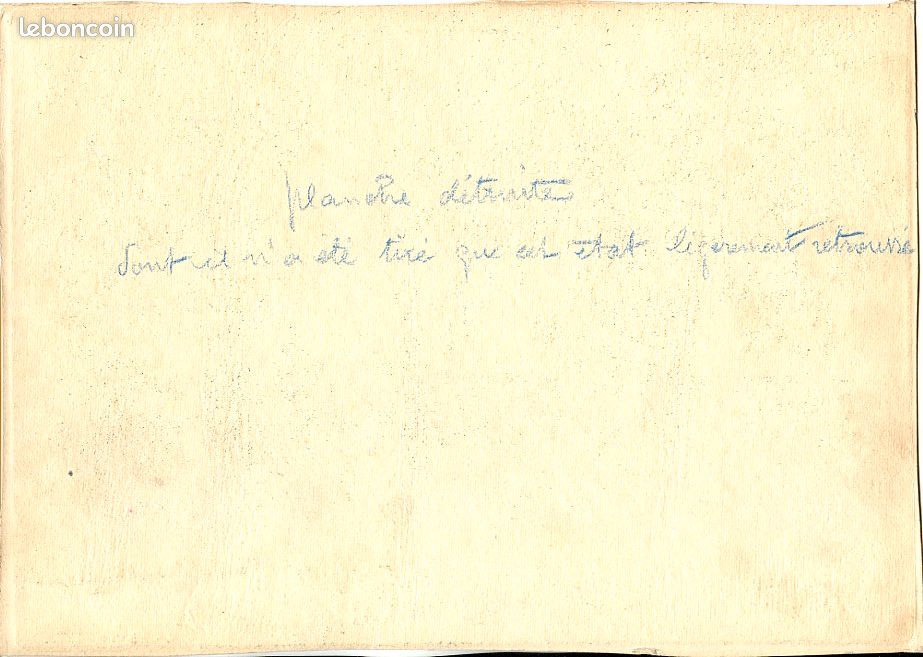 leboncoin
planche détruite
dont il n'a été tiré que cet état légèrement retroussé